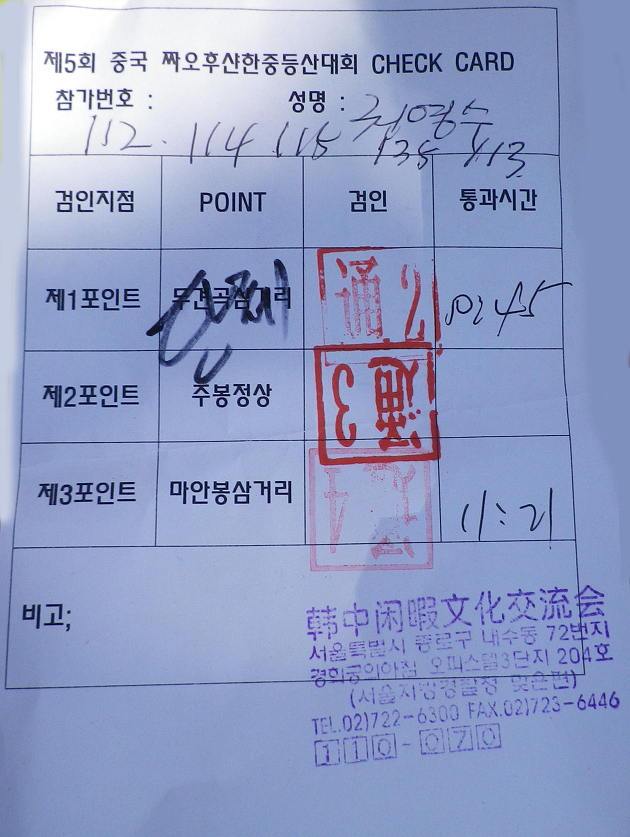 제5회 중국 짜오후산한중등산대회 CHECK CARD
참가번호 : 성명 :
112. 114 115 135 113
검인지점 POINT 검인 통과시간
제1포인트 通 2 10:45
제2포인트 주봉정상 通 3
제3포인트 마안봉삼거리 4 11:21
비고;
韩中闲暇文化交流会
서울특별시 종로구 내수동 72번지
경희궁의아침 오피스텔3단지 204호
(서울지방경찰청 맞은편)
TEL.02)722-6300 FAX.02)723-6446
110-070